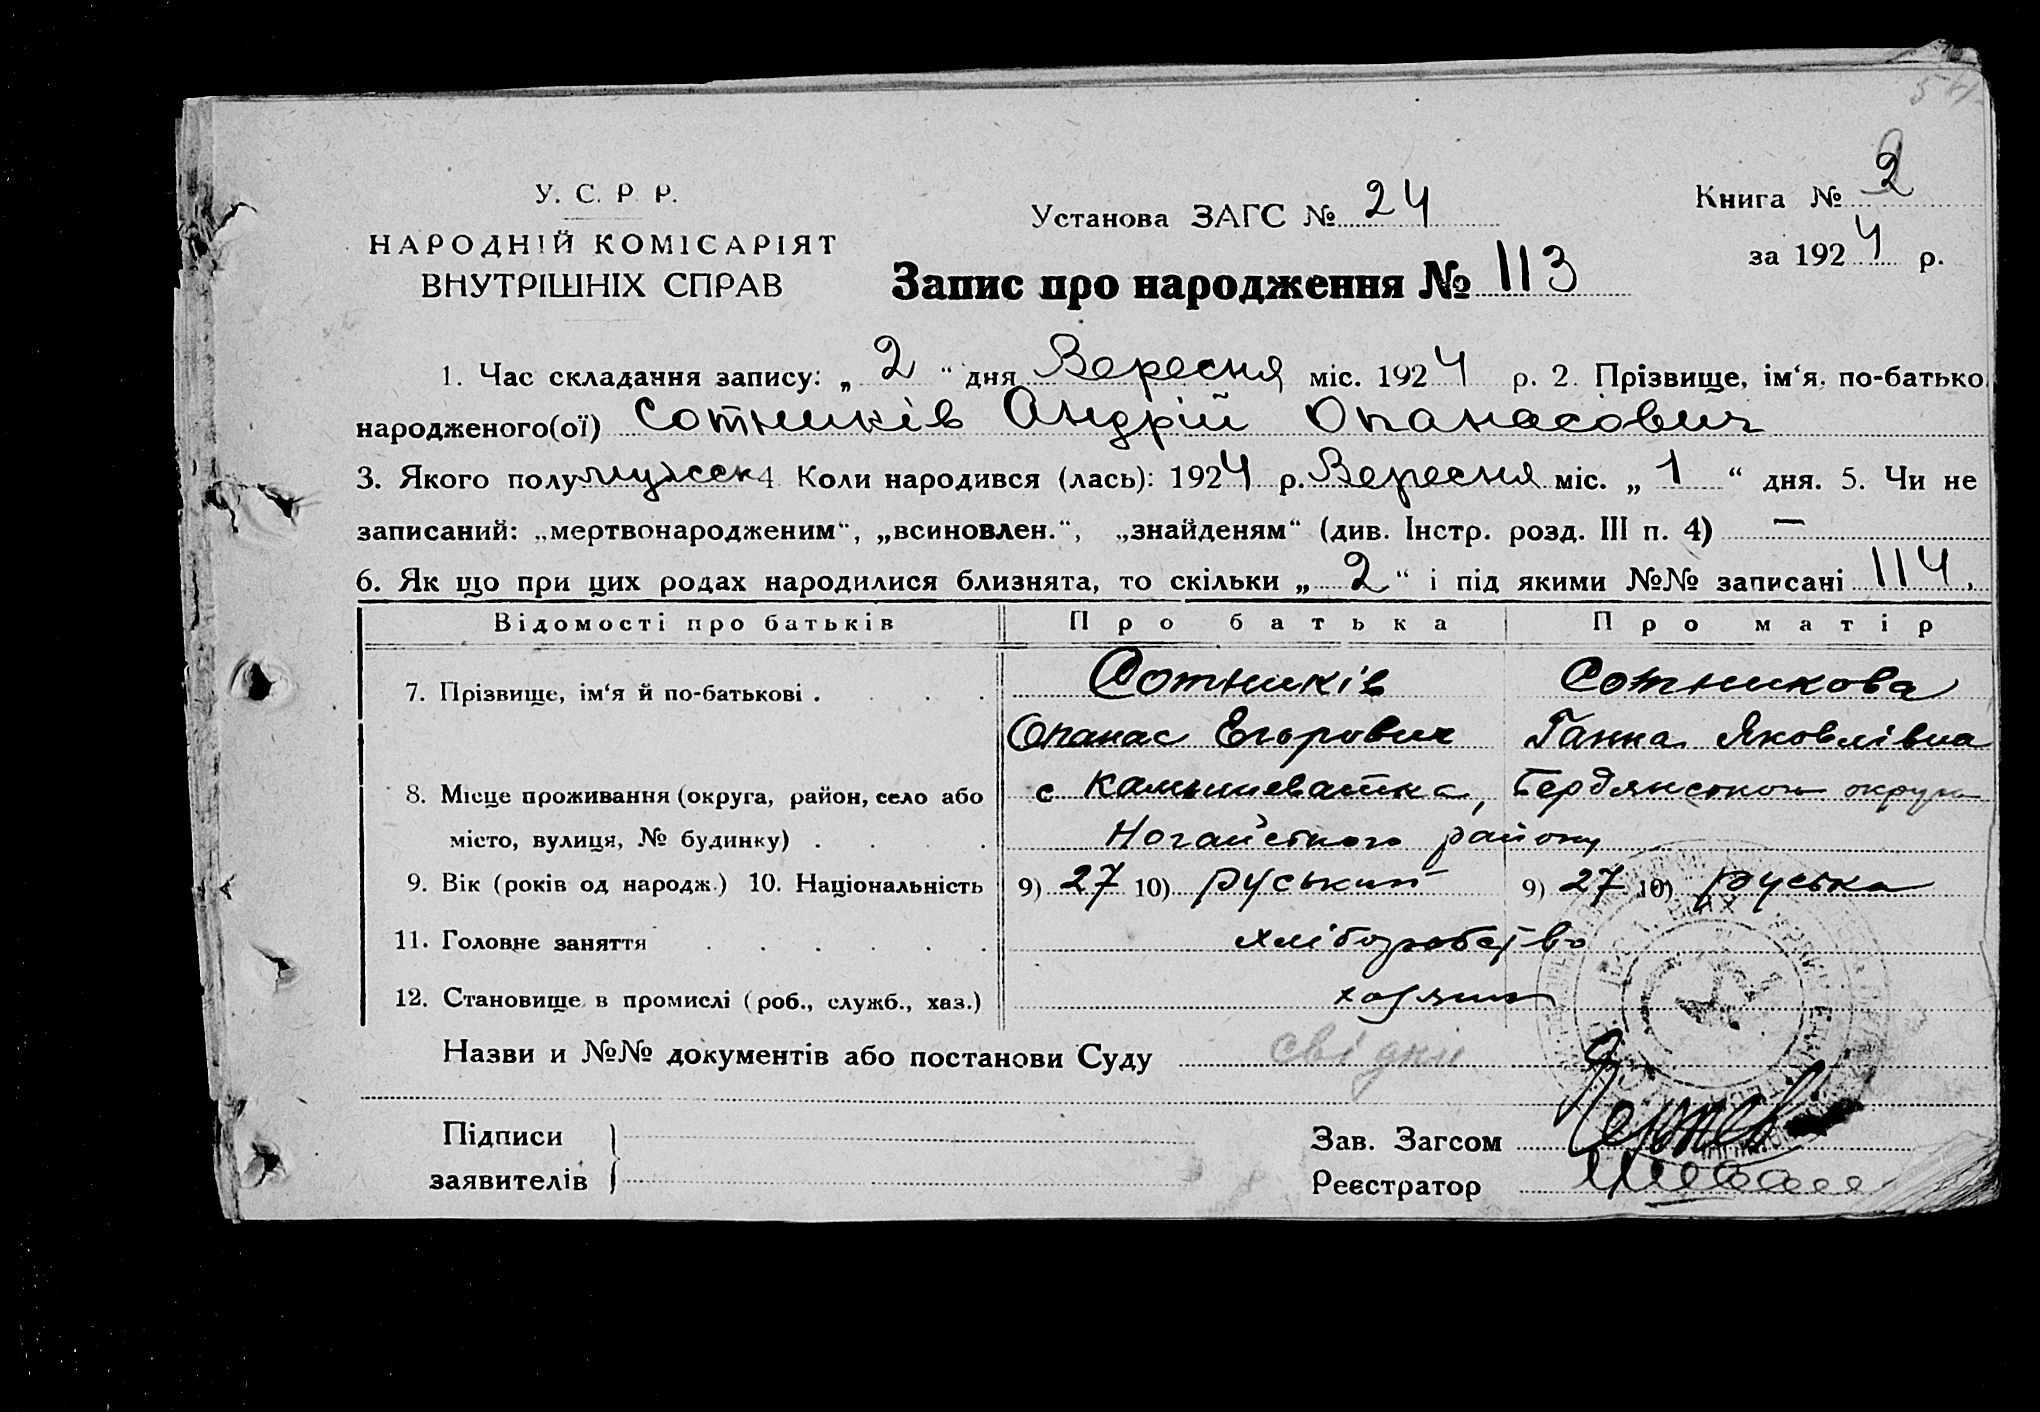 54
У. С. Р. Р.
НАРОДНІЙ КОМІСАРІЯТ
ВНУТРІШНІХ СПРАВ
Установа ЗАГС № 24
Книга № 2
за 1924 р.
Запис про народження № 113
1. Час складання запису: „ 2 “ дня Вересня міс. 1924 р. 2. Прізвище, ім‘я, по-батько
народженого(ої) Сотників Андрій Опанасович
3. Якого полу мужеск 4. Коли народився (лась): 1924 р. Вересня міс. „ 1 “ дня. 5. Чи не
записаний: „мертвонародженим“, „всиновлен.“, „знайденям“ (див. Інстр. розд. III п. 4) —
6. Як що при цих родах народилися близнята, то скільки „ 2 “ і під якими №№ записані 114,
Відомості про батьків Про батька Про матір
7. Прізвище, ім‘я й по-батькові . . . . Сотників Сотникова
Опанас Егорович Ганна Яковлівна
8. Місце проживання (округа, район, село або с Камышеватка, Бердянського округи
місто, вулиця, № будинку) . . . . Ногайського району
9. Вік (років од народж.) 10. Національність 9) 27 10) руський 9) 27 10) руська
11. Головне заняття . . . . . . хліборобство
12. Становище в промислі (роб., служб., хаз.) хозяин
Назви и №№ документів або постанови Суду свідки
Підписи
заявителів
Зав. Загсом
Реєстратор